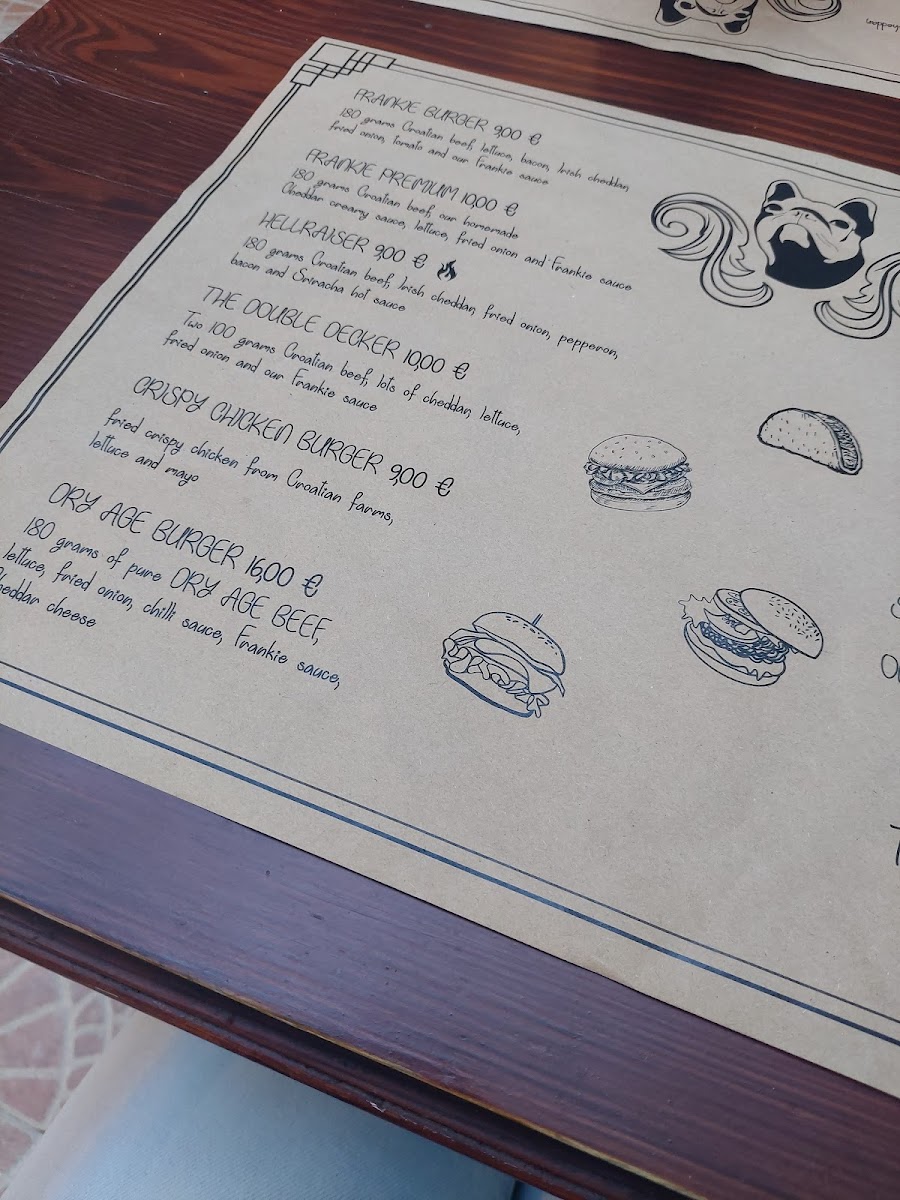 FRANKIE BURGER 9,00 €
180 grams Croatian beef, lettuce, bacon, Irish cheddar,
fried onion, tomato and our Frankie sauce
FRANKIE PREMIUM 10,00 €
180 grams Croatian beef, our homemade
Cheddar creamy sauce, lettuce, fried onion and Frankie sauce
HELLRAISER 9,00 €
180 grams Croatian beef, Irish cheddar, fried onion, pepperoni,
bacon and Sriracha hot sauce
THE DOUBLE DECKER 10,00 €
Two 100 grams Croatian beef, lots of cheddar, lettuce,
fried onion and our Frankie sauce
CRISPY CHICKEN BURGER 9,00 €
fried crispy chicken from Croatian farms,
lettuce and mayo
DRY AGE BURGER 16,00 €
180 grams of pure DRY AGE BEEF,
lettuce, fried onion, chilli sauce, Frankie sauce,
cheddar cheese